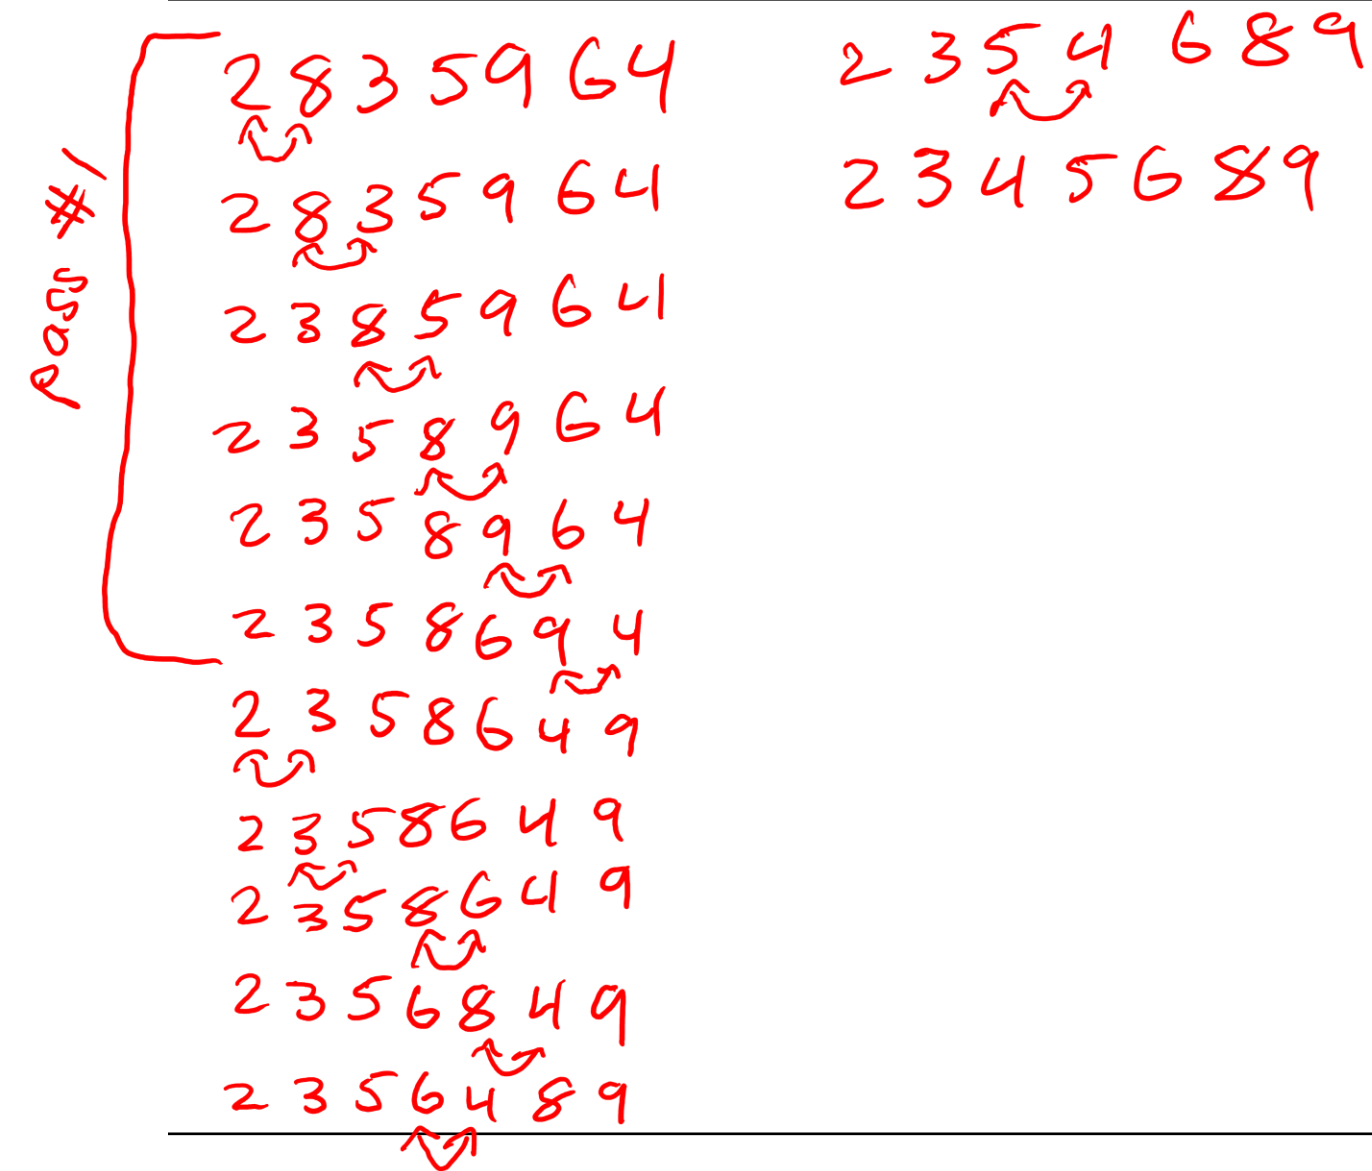 pass #1
2 8 3 5 9 6 4
2 8 3 5 9 6 4
2 3 8 5 9 6 4
2 3 5 8 9 6 4
2 3 5 8 9 6 4
2 3 5 8 6 9 4
2 3 5 8 6 4 9
2 3 5 8 6 4 9
2 3 5 8 6 4 9
2 3 5 6 8 4 9
2 3 5 6 4 8 9
2 3 5 4 6 8 9
2 3 4 5 6 8 9